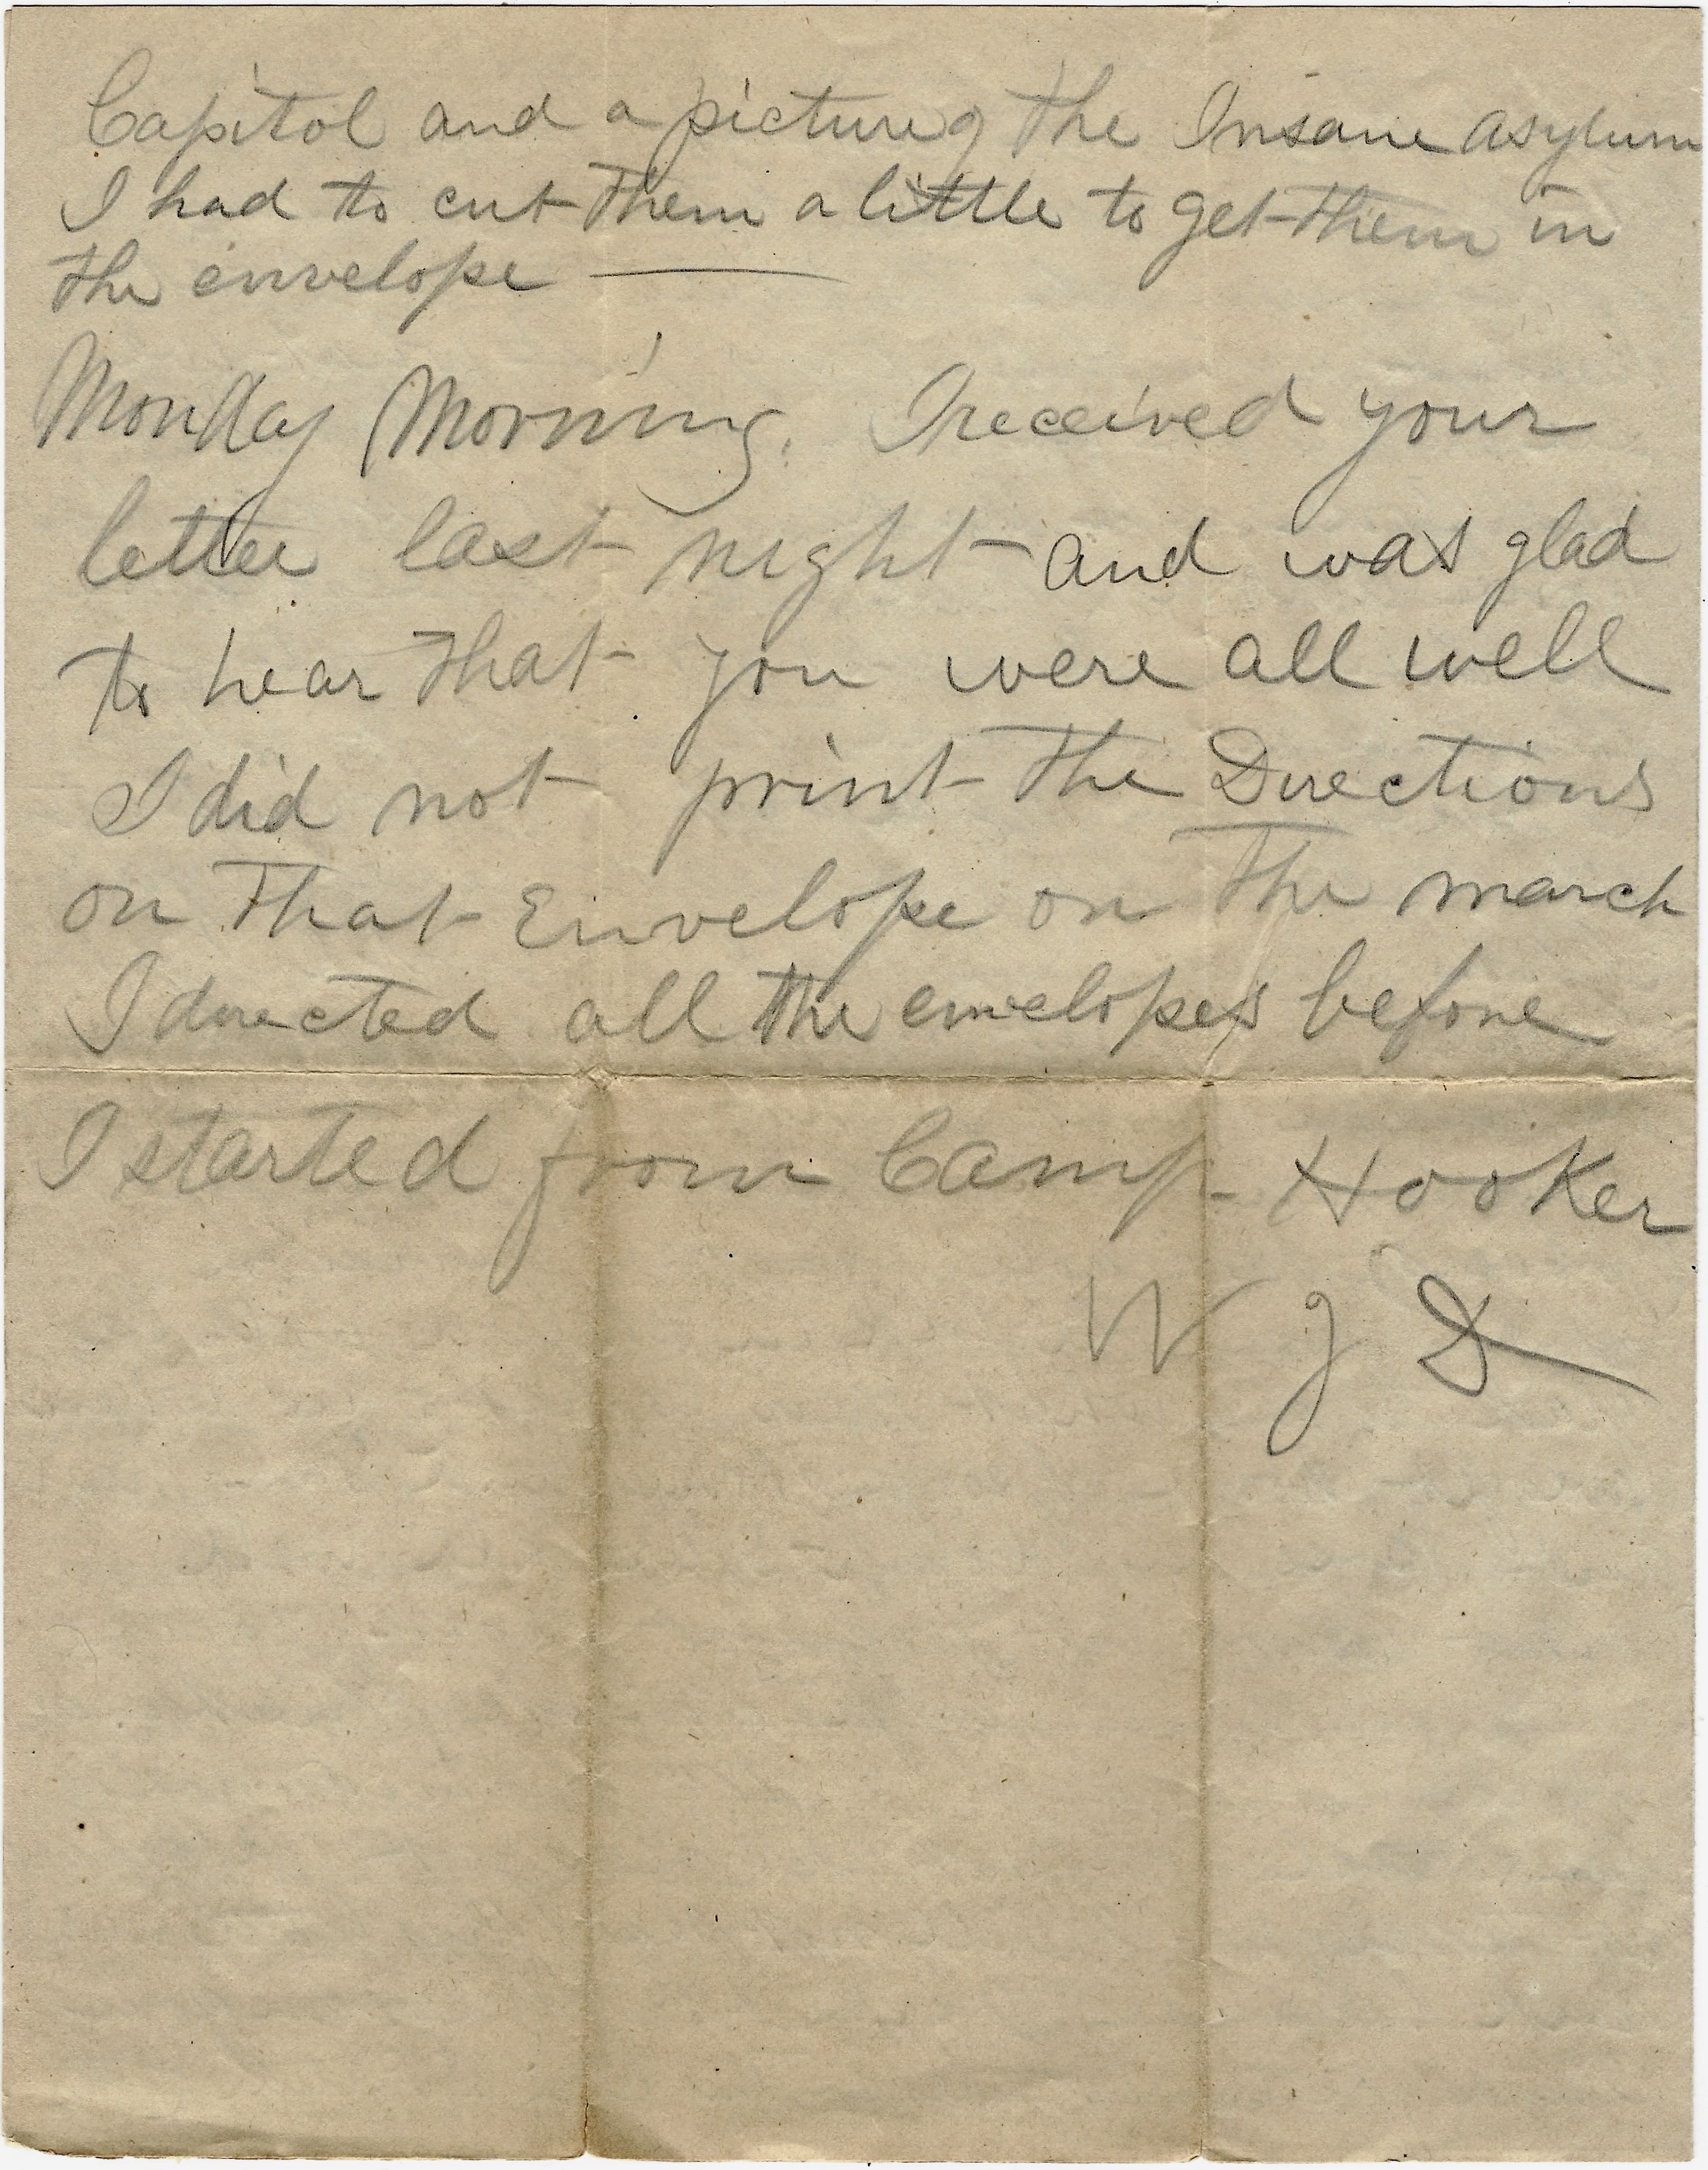 Capitol and a picture of the Insane asylum
I had to cut them a little to get them in
the envelope —
Monday Morning. I received your
letter last night and was glad
to hear that you were all well
I did not print the Directions
on that Envelope on the march
I directed all the envelopes before
I started from Camp Hooker
W J D